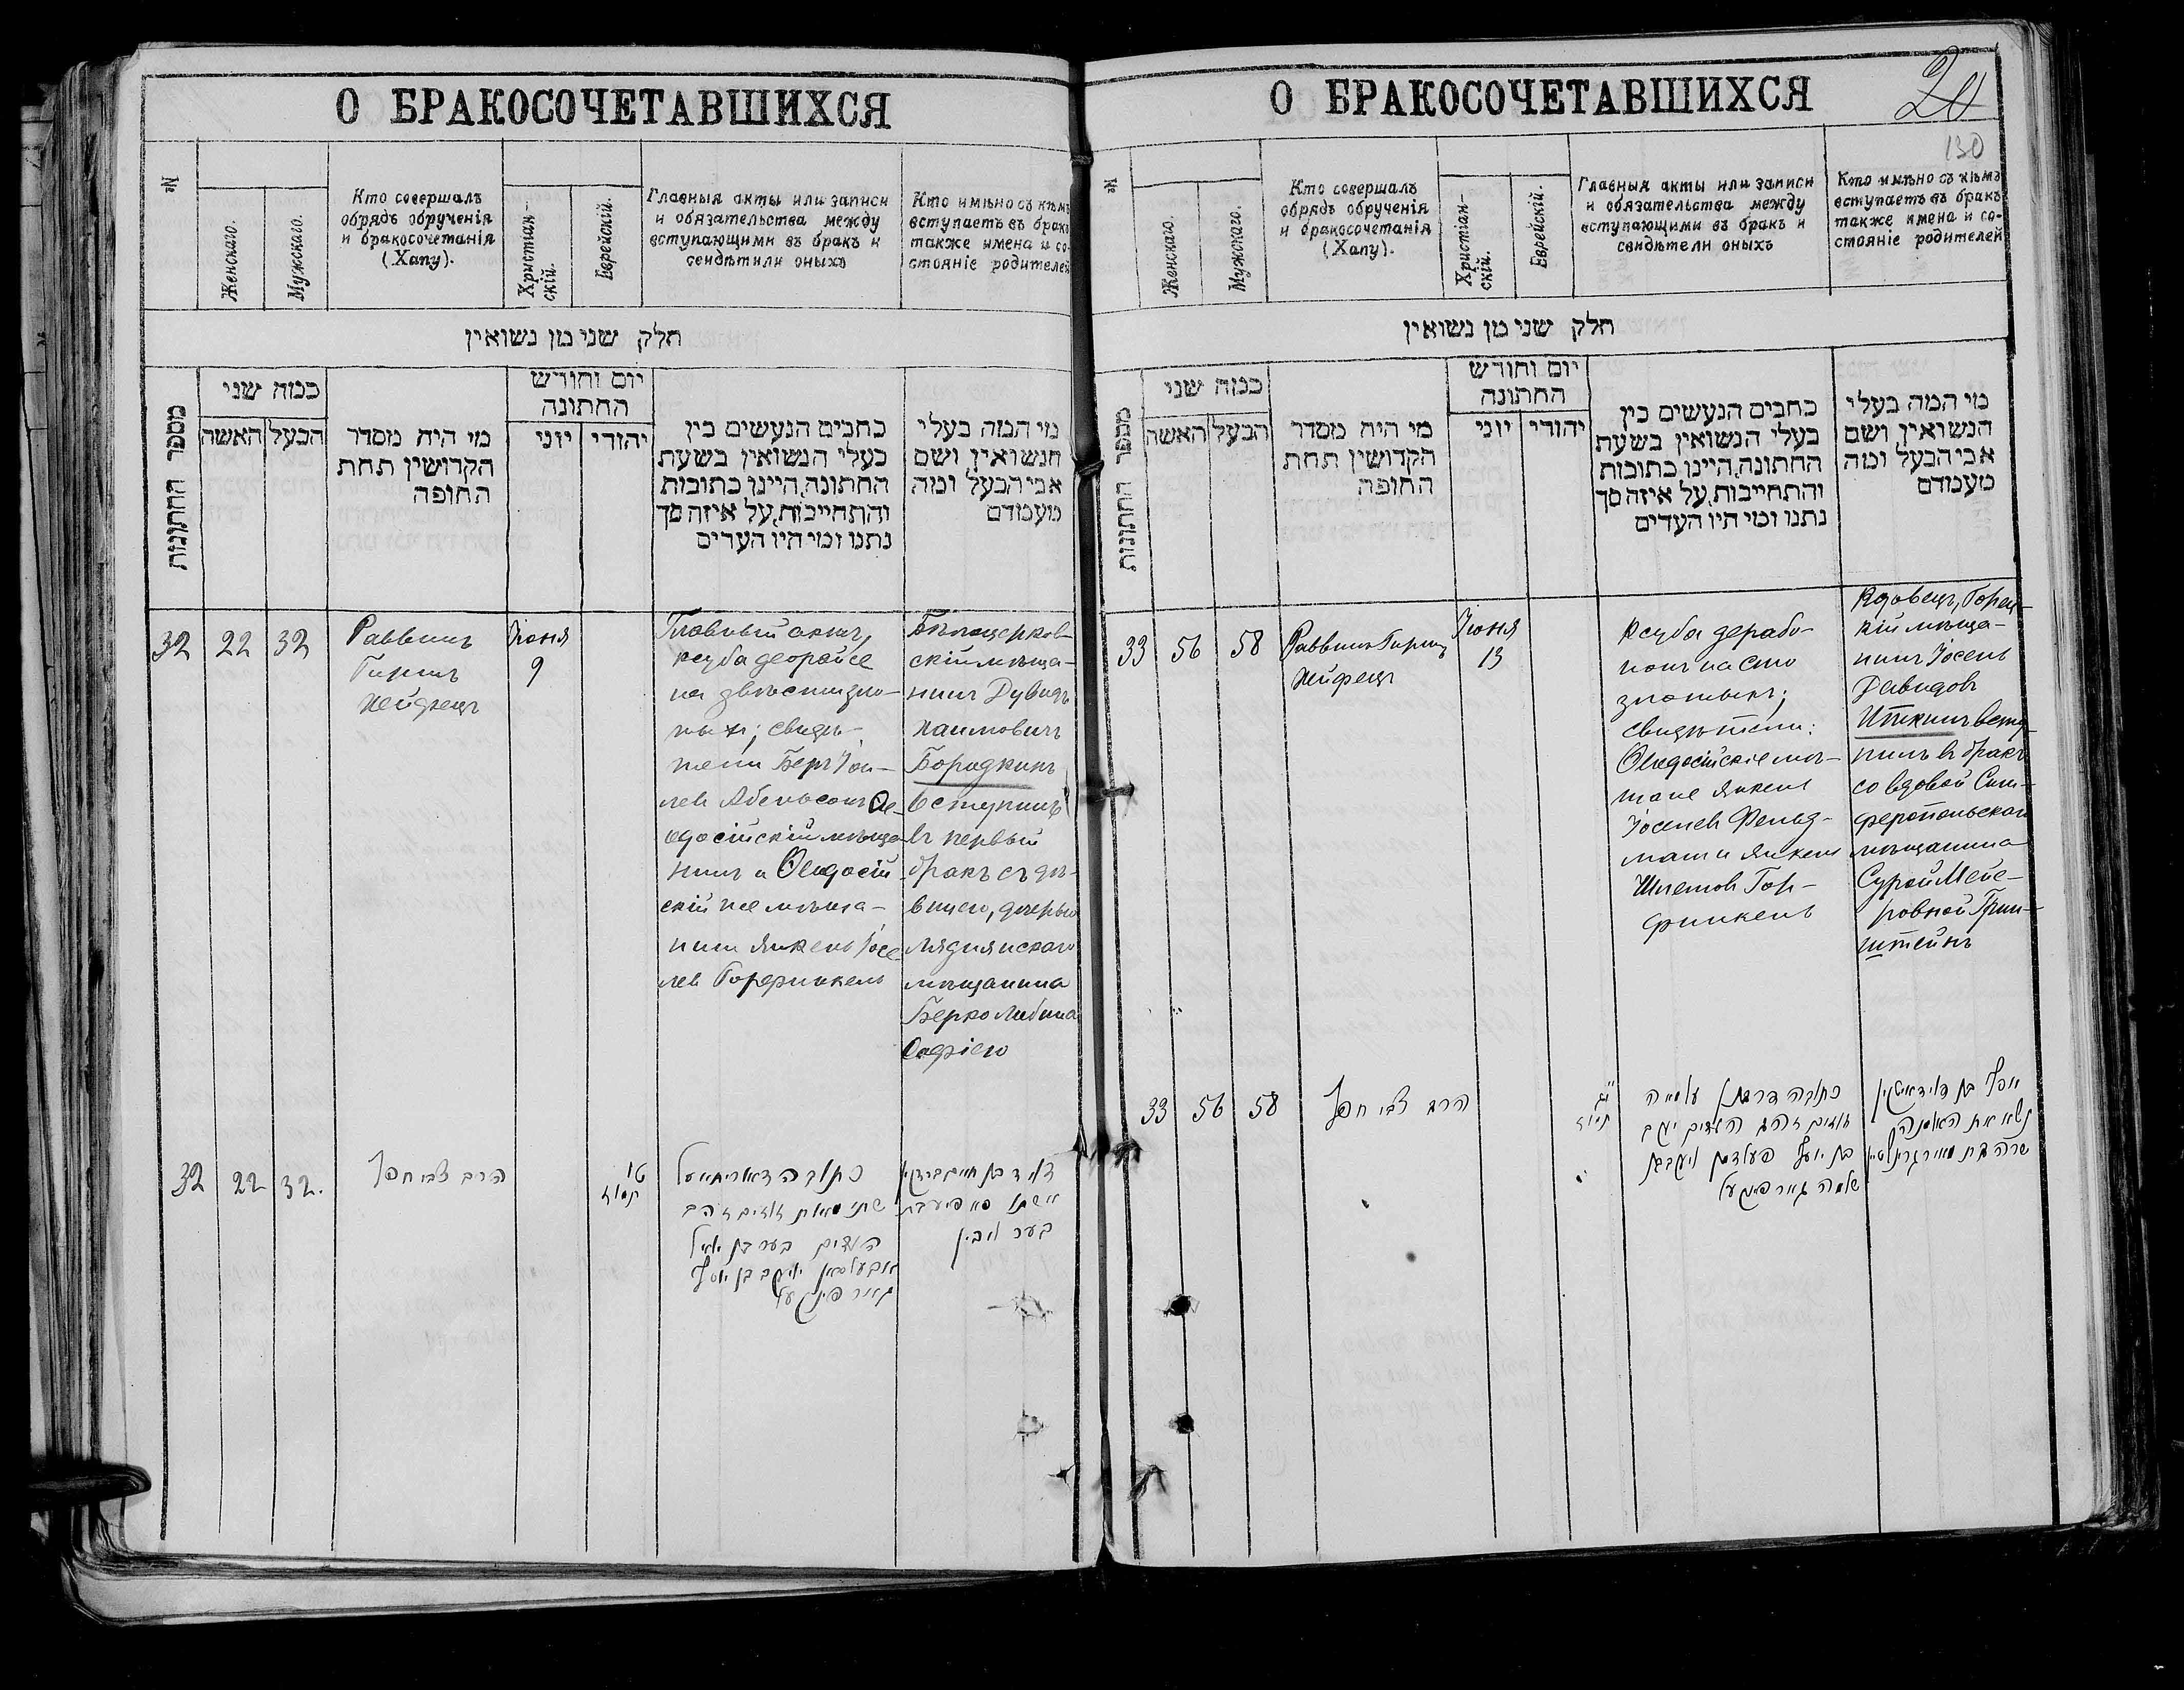 О БРАКОСОЧЕТАВШИХСЯ
№
Женскаго.
Мужскаго.
Кто совершалъ
обрядъ обрученія
и бракосочетанія
(Хапу).
Христіан-
скій.
Еврейскій.
Главныя акты или записи
и обязательства между
вступающими въ бракъ и
свидѣтили оныхъ
Кто имѣно съ кѣмъ
вступаетъ въ бракъ
также имена и со-
стояніе родителей
חלק שני מן נשואין
מספר החתונות
כמה שני
האשה
הבעל
מי היה מסדר
הקדושין תחת
החופה
יום וחודש
החתונה
יוני
יהודי
כתבים הנעשים בין
בעלי הנשואין בשעת
החתונה, היינו כתובות
והתחייבות, על איזה סך
נתנו ומי היו העדים
מי המה בעלי
הנשואין, ושם
אבי הבעל ומה
מעמדם
32
22
32
Раввинъ
Гиршъ
Хейфецъ
Іюня
9
Главный актъ,
ксуба деорайсе
на двѣсти зло-
тыхъ; свидѣ-
тели Беръ Іои-
лев Абельсонъ Ѳе-
одосійскій мѣща-
нинъ и Ѳеодосій-
скій же мѣща-
нинъ Янкель Іосе
лев Горфинкель
Бѣлоцерков-
скій мѣща-
нинъ Дувидъ
Хаимовичъ
Бородкинъ
вступилъ
въ первый
бракъ съ дѣ-
вицею, дочерью
Лядиянскаго
мѣщанина
Берко Либина
Софіею
32
22
32.
הרב צבי חפץ
טו
תמוז
כתובה דאורייתא על
שתי מאות זוזים זהב
העדים בער בן יואל
אבעלסאן יעקב בן יוסף
גארפינקעל
דוד בן חיים ברודקין
אישתו סאפיע בת
בער ליבין
О БРАКОСОЧЕТАВШИХСЯ
20
130
№
Женскаго.
Мужскаго.
Кто совершалъ
обрядъ обрученія
и бракосочетанія
(Хапу).
Христіан-
скій.
Еврейскій.
Главныя акты или записи
и обязательства между
вступающими въ бракъ и
свидѣтели оныхъ
Кто имѣно съ кѣмъ
вступаетъ въ бракъ
также имена и со-
стояніе родителей
חלק שני מן נשואין
מספר החתונות
כמה שני
האשה
הבעל
מי היה מסדר
הקדושין תחת
החופה
יום וחודש
החתונה
יוני
יהודי
כתבים הנעשים בין
בעלי הנשואין בשעת
החתונה, היינו כתובות
והתחייבות, על איזה סך
נתנו ומי היו העדים
מי המה בעלי
הנשואין, ושם
אבי הבעל ומה
מעמדם
33
56
58
Раввинъ Гиршъ
Хейфецъ
Іюня
13
Ксуба дерабо-
нонъ на сто
злотыхъ;
свидѣтели:
Ѳеодосійскіе мѣ-
щане Янкель
Іоселев Фельд-
манъ и Янкель
Шлемов Гор-
финкель
Вдовецъ, Горец-
кій мѣща-
нинъ Іосель
Давидов
Иткинъ всту-
пилъ в бракъ
со вдовой Сим-
феропольскаго
мѣщанина
Сурой Мейе-
ровной Грин-
штейнъ
33
56
58
הרב צבי חפץ
תמוז
כתובה דרבנן על מאה
זוזים זהב העדים יעקב
בן יוסף פעלדמן ויעקב בן
שלמה גארפינקעל
יוסף בן דוד איטקין
נשא את האלמנה
שרה בת מאיר גרינשטיין